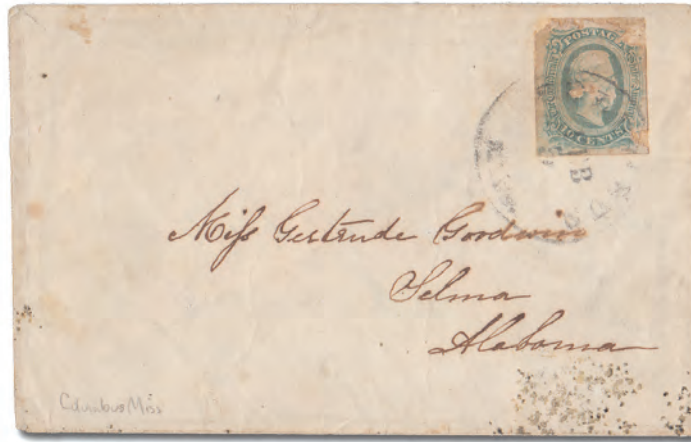 POSTAGE
TEN CENTS
Miſs Gertrude Goodwin
Selma
Alabama
Columbus Miss